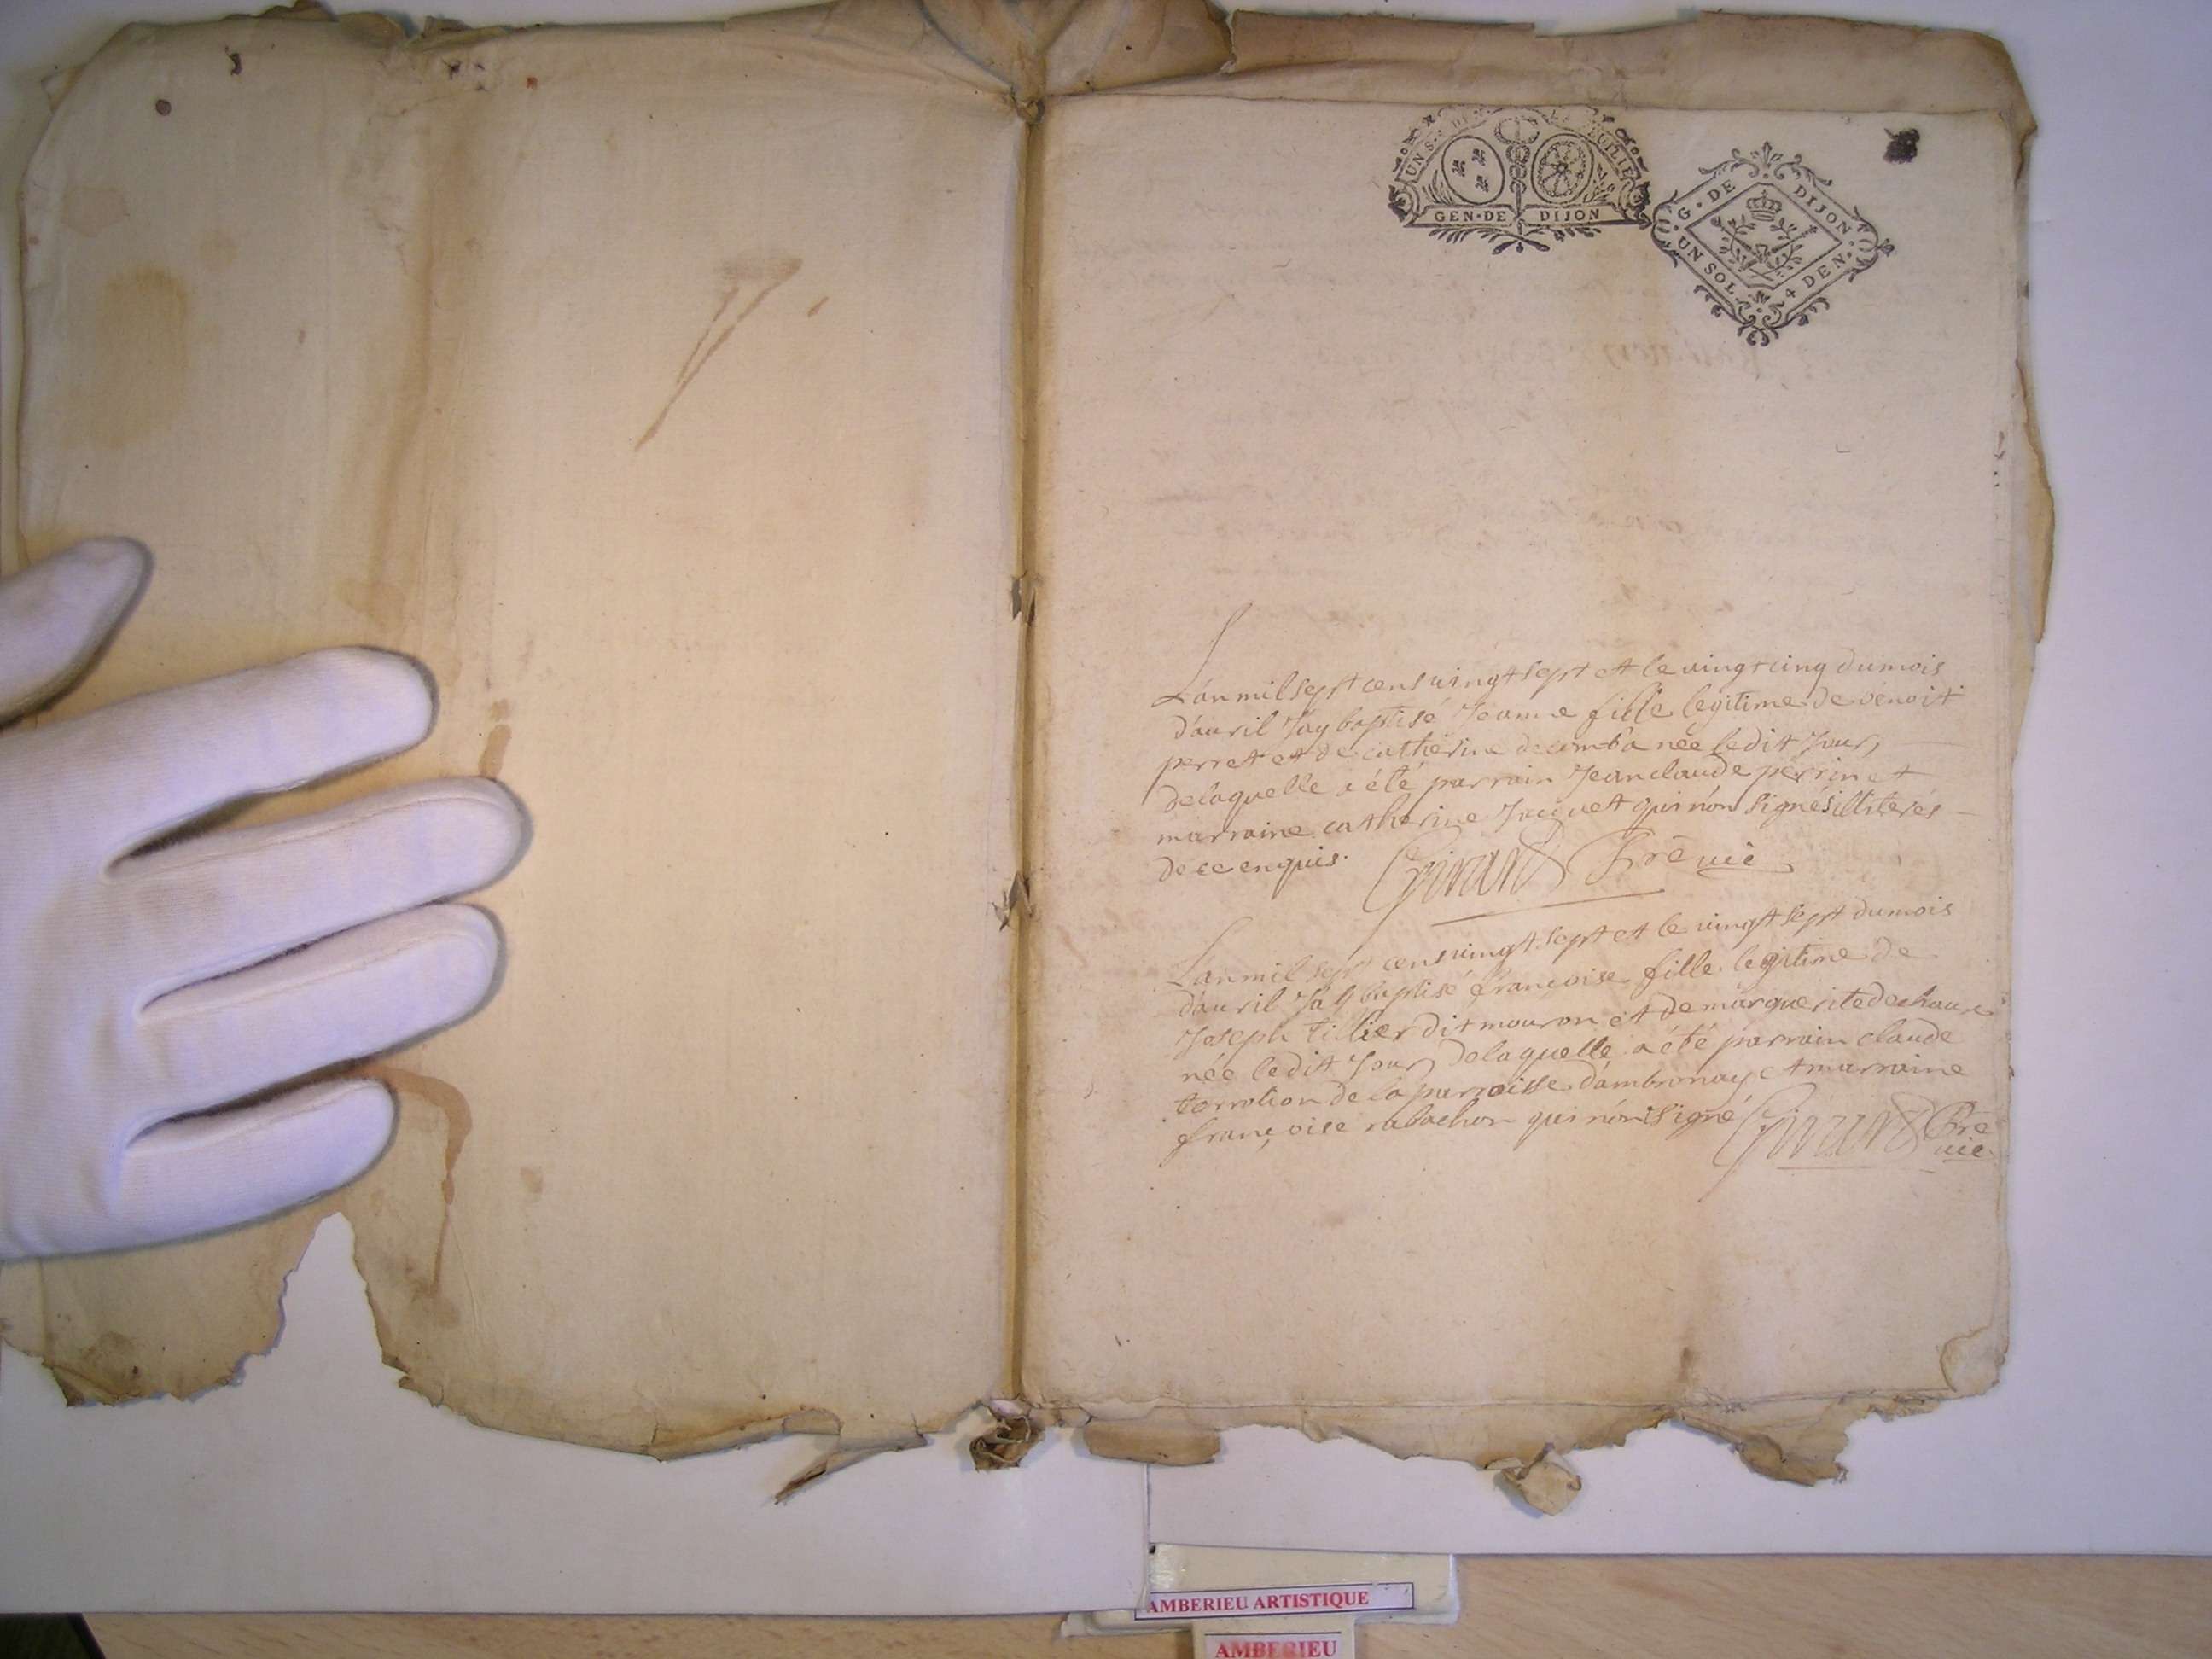 GEN·DE DIJON
G·DE DIJON
UN SOL 4 DEN·
L'an mil sept cens vingt sept et le vingt cinq du mois
d'auril Jay baptisé Jeanne fille legitime de benoit
perret et de catherine decomba née ledit Jour,
de laquelle a été parrain Jean claude perrin et
marraine catherine Jacquet qui n'on signés illiterés
de ce enquis. Girard Pre vic
L'an mil sept cens vingt sept et le vingt sept du mois
d'auril Jay baptisé françoise fille legitime de
Joseph tillier dit mouron et de marguerite dechaux
née ledit Jour, de laquelle a été parrain claude
de la parroisse d'ambronay et marraine
françoise rabachon qui n'on signé Girard Pre
vic
AMBERIEU ARTISTIQUE
AMBERIEU